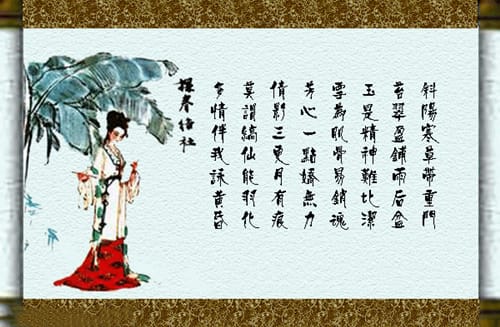 斜陽寒草帶重門
苔翠盈鋪雨后盆
玉是精神難比潔
雪為肌骨易銷魂
芳心一點嬌無力
倩影三更月有痕
莫謂縞仙能羽化
多情伴我詠黃昏
探春结社